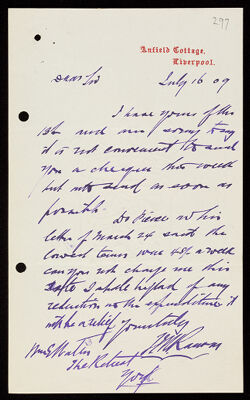 297
Anfield Cottage,
Liverpool.
Dear Sir
July 16 09
I have yours of the
13th and am sorry to say
it is not convenient to send
you a cheque this week
but will send as soon as
possible.
Dr Pierce in his
letter of March 24 said the
lowest terms were 42/- a week
can you not charge me this
I shall be glad of any
reduction as the expenditure is
not a relief. Yours truly
The Retreat
York